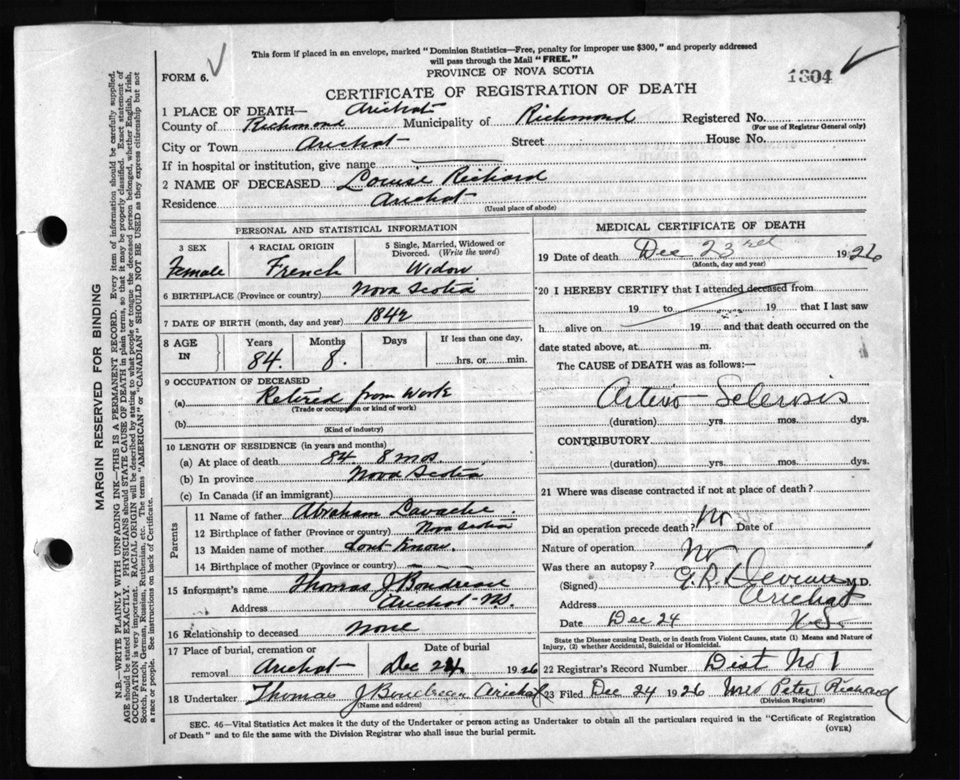 This form if placed in an envelope, marked "Dominion Statistics—Free, penalty for improper use $300," and properly addressed
will pass through the Mail "FREE."
FORM 6.
PROVINCE OF NOVA SCOTIA
1304
CERTIFICATE OF REGISTRATION OF DEATH
1 PLACE OF DEATH— Arichat
County of Richmond Municipality of Richmond Registered No.
(For use of Registrar General only)
City or Town Arichat Street House No.
If in hospital or institution, give name
2 NAME OF DECEASED Louise Richard
Residence Arichat
(Usual place of abode)
PERSONAL AND STATISTICAL INFORMATION
3 SEX 4 RACIAL ORIGIN 5 Single, Married, Widowed or
Divorced. (Write the word)
Female French Widow
6 BIRTHPLACE (Province or country) Nova Scotia
7 DATE OF BIRTH (month, day and year) 1842
8 AGE IN Years Months Days If less than one day,
84. 8. hrs. or min.
9 OCCUPATION OF DECEASED
(a) Retired from Work
(Trade or occupation or kind of work)
(b)
(Kind of industry)
10 LENGTH OF RESIDENCE (in years and months)
(a) At place of death 84 8 mos
(b) In province Nova Scotia
(c) In Canada (if an immigrant)
Parents
11 Name of father Abraham Lavache
12 Birthplace of father (Province or country) Nova Scotia
13 Maiden name of mother dont know.
14 Birthplace of mother (Province or country)
15 Informant's name Thomas J Boudreau
Address Arichat N.S.
16 Relationship to deceased None
17 Place of burial, cremation or removal Date of burial
Arichat Dec 24 1926
18 Undertaker Thomas J Boudreau Arichat
(Name and address)
MEDICAL CERTIFICATE OF DEATH
19 Date of death Dec 23rd 1926
(Month, day and year)
20 I HEREBY CERTIFY that I attended deceased from
19 to 19 that I last saw
h alive on 19 and that death occurred on
date stated above, at m.
The CAUSE OF DEATH was as follows:—
Arterio-Sclerosis
(duration) yrs. mos. dys.
CONTRIBUTORY
(duration) yrs. mos. dys.
21 Where was disease contracted if not at place of death?
Did an operation precede death? No Date of
Nature of operation
Was there an autopsy? No
(Signed) M.D.
Address Arichat
Date Dec 24 N.S.
State the Disease causing Death, or in death from Violent Causes, state (1) Means and Nature of
Injury, (2) whether Accidental, Suicidal or Homicidal.
22 Registrar's Record Number Dist No 1
23 Filed Dec 24 1926 Mrs Peter Richard
(Division Registrar)
SEC. 46—Vital Statistics Act makes it the duty of the Undertaker or person acting as Undertaker to obtain all the particulars required in the "Certificate of Registration
of Death" and to file the same with the Division Registrar who shall issue the burial permit.
(OVER)
MARGIN RESERVED FOR BINDING
N.B.—WRITE PLAINLY WITH UNFADING INK—THIS IS A PERMANENT RECORD. Every item of information should be carefully supplied.
AGE should be stated EXACTLY. PHYSICIANS should STATE CAUSE OF DEATH in plain terms, so that it may be properly classified. Exact statement of
OCCUPATION is very important. RACIAL ORIGIN will be described by stating to what people or tongue the deceased person belonged, whether English, Irish,
Scotch, French, German, Russian, Ruthenian, etc. The terms "AMERICAN" or "CANADIAN" SHOULD NOT BE USED as they express citizenship but not
a race or people. See instructions on back of Certificate.